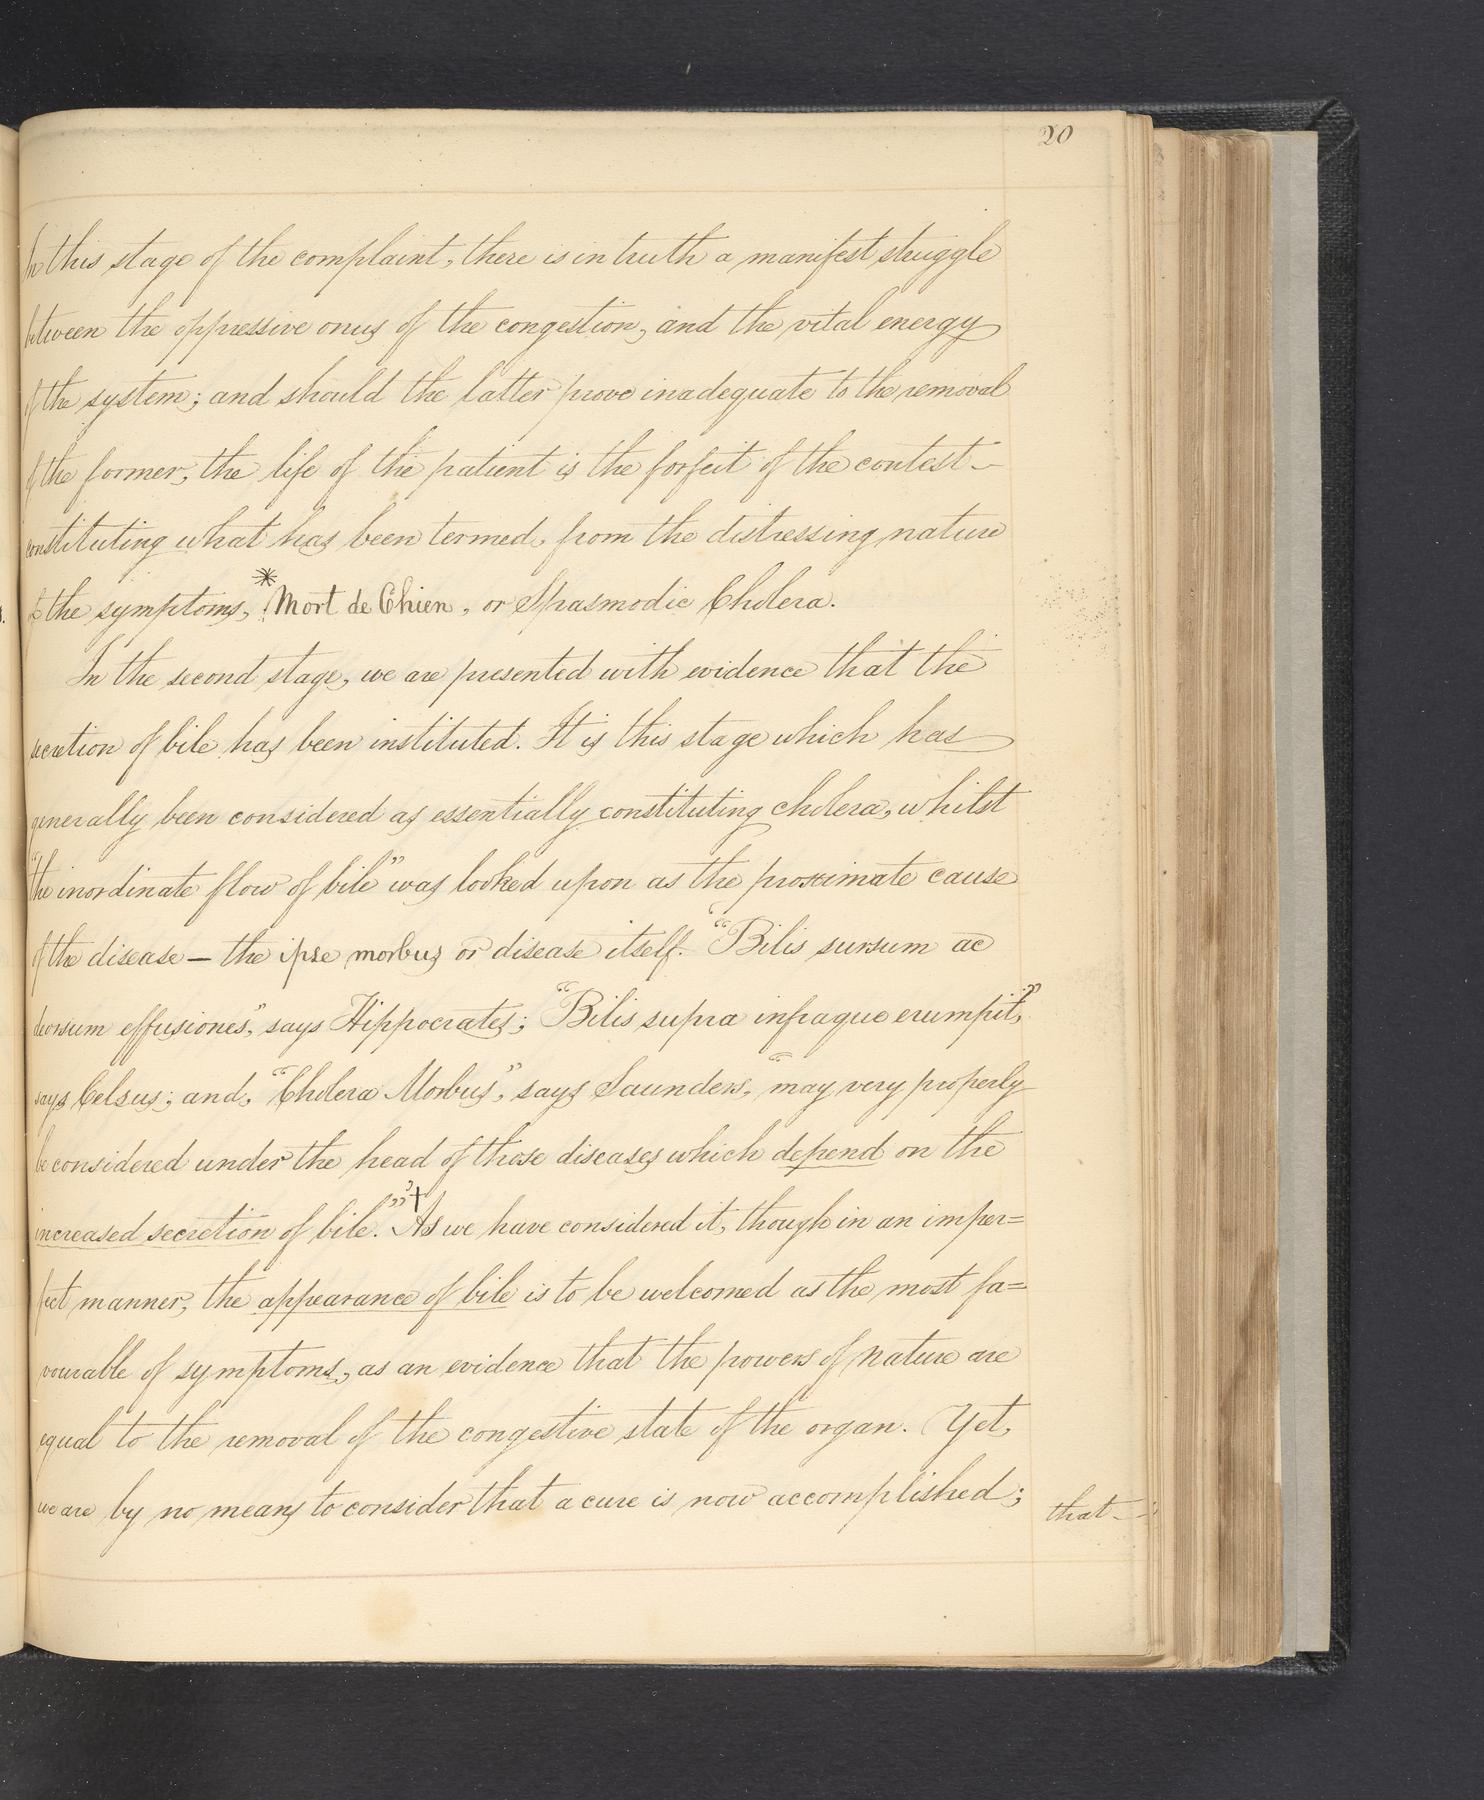 20
In this stage of the complaint, there is in truth a manifest struggle
between the oppressive onus of the congestion, and the vital energy
of the system; and should the latter prove inadequate to the removal
of the former, the life of the patient is the forfeit of the contest —
constituting what has been termed, from the distressing nature
of the symptoms, *Mort de Chien, or Spasmodic Cholera.
In the second stage, we are presented with evidence that the
secretion of bile has been instituted. It is this stage which has
generally been considered as essentially constituting cholera, whilst
"the inordinate flow of bile" was looked upon as the proximate cause
of the disease — the ipse morbus or disease itself. "Bilis sursum ac
deorsum effusiones," says Hippocrates; "Bilis supra infraque erumpit,"
says Celsus; and, "Cholera Morbus", says Saunders, "may very properly
be considered under the head of those diseases which depend on the
increased secretion of bile."† As we have considered it, though in an imper=
fect manner, the appearance of bile is to be welcomed as the most fa=
vourable of symptoms, as an evidence that the powers of nature are
equal to the removal of the congestive state of the organ. Yet,
we are by no means to consider that a cure is now accomplished;
that —